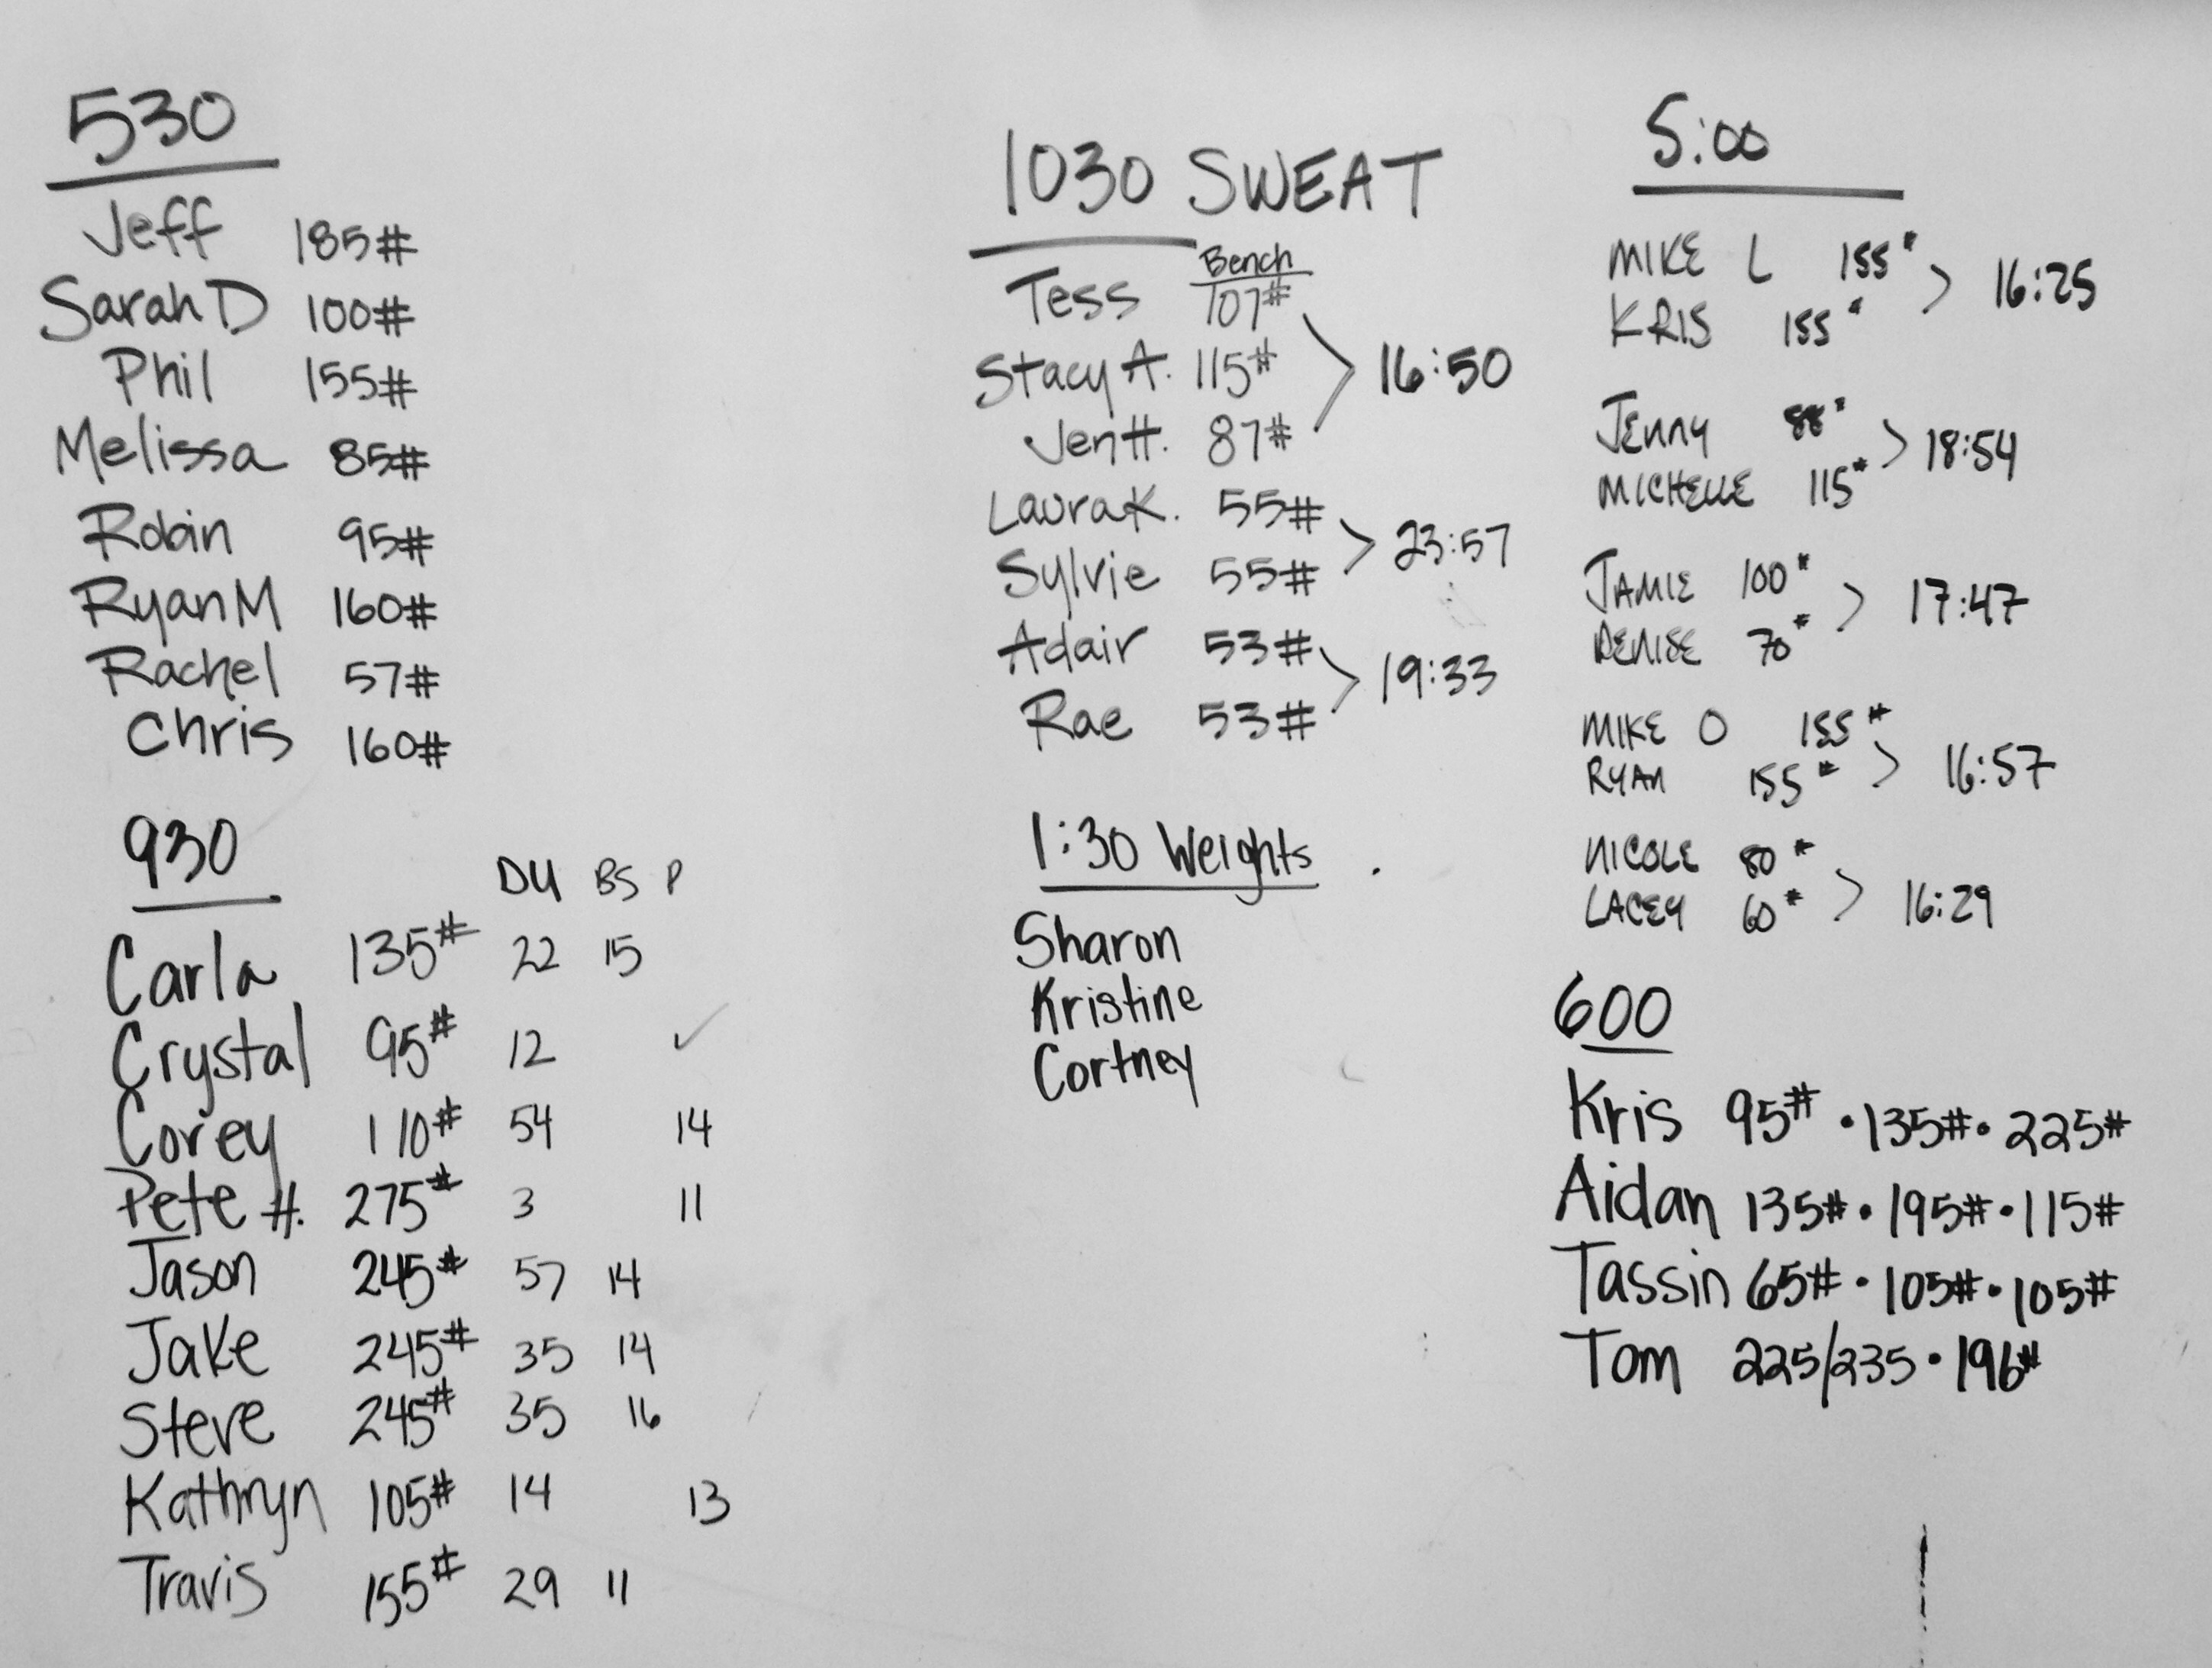 530
Jeff 185#
Sarah D 100#
Phil 155#
Melissa 85#
Robin 95#
Ryan M 160#
Rachel 57#
Chris 160#
930
DU BS P
Carla 135# 22 15
Crystal 95# 12 ✓
Corey 110# 54 14
Pete H. 275# 3 11
Jason 245# 57 14
Jake 245# 35 14
Steve 245# 35 16
Kathryn 105# 14 13
Travis 155# 29 11
1030 SWEAT
Bench
Tess 107#
Stacy A. 115# > 16:50
Jen H. 87#
Laura K. 55#
> 23:57
Sylvie 55#
Adair 53#
> 19:33
Rae 53#
1:30 Weights
Sharon
Kristine
Cortney
5:00
MIKE L 155#
> 16:25
KRIS 155#
JENNY 88#
> 18:54
MICHELLE 115#
JAMIE 100#
> 17:47
DENISE 70#
MIKE O 155#
> 16:57
RYAN 155#
NICOLE 80#
> 16:29
LACEY 60#
600
Kris 95# • 135# • 225#
Aidan 135# • 195# • 115#
Tassin 65# • 105# • 105#
Tom 225/235 • 196#